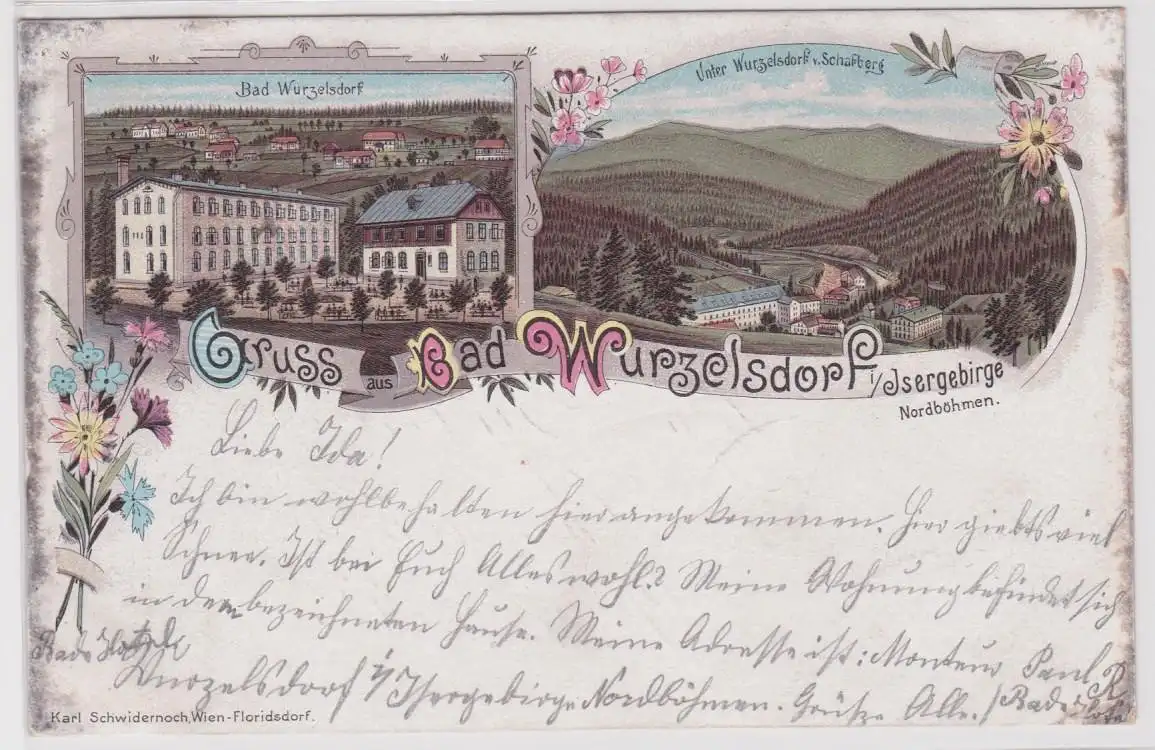 Bad Wurzelsdorf
Unter Wurzelsdorf v. Schafberg
Gruss aus Bad Wurzelsdorf i/Isergebirge
Nordböhmen.
Liebe Ida!
Ich bin wohlbehalten hier angekommen. Hier giebts viel
Schnee. Ist bei Euch Alles wohl? Meine Wohnung befindet sich
in dem bezeichneten Hause. Meine Adresse ist: Monteur Paul R
Bade Hotel
Wurzelsdorf i/Isergebirge Nordböhmen. Grüße Alle. / Bade
Karl Schwidernoch, Wien-Floridsdorf.